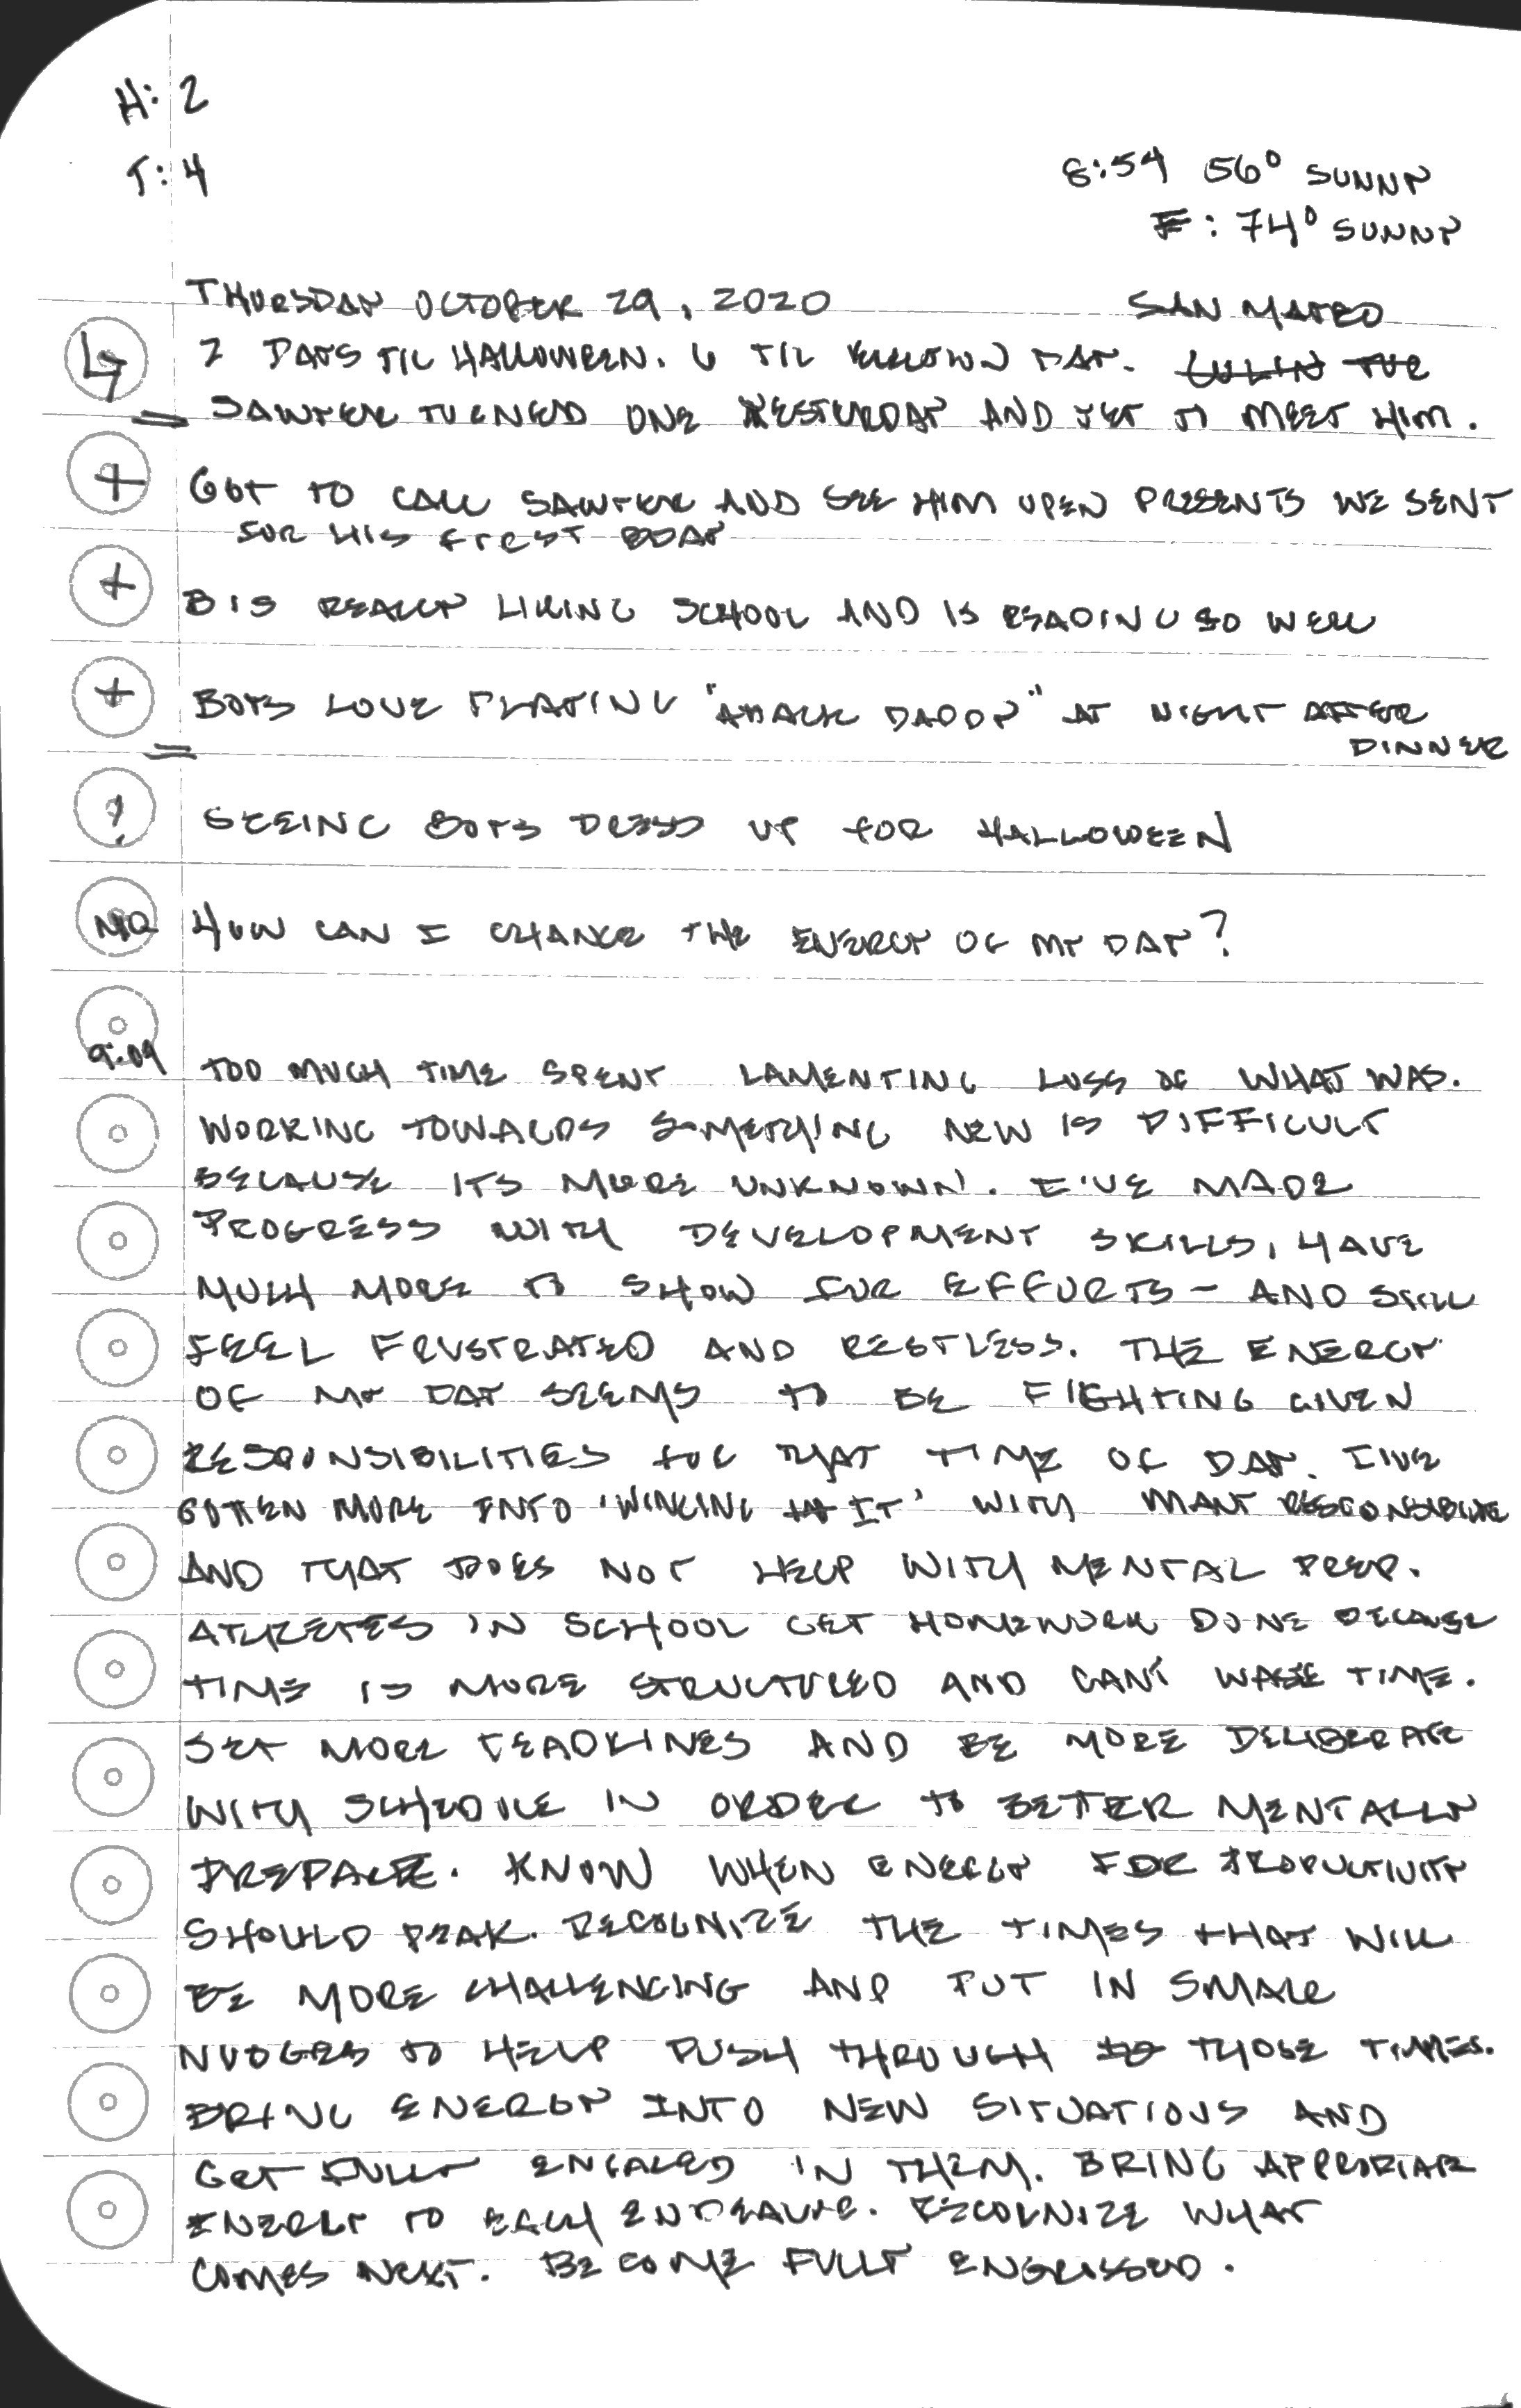 H: 2
T: 4
8:54 56° SUNNY
F: 74° SUNNY
THURSDAY OCTOBER 29, 2020 SAN MATEO
2 DAYS TIL HALLOWEEN. 6 TIL DAY.
= SAWYER TURNED ONE YESTERDAY AND YET TO MEET HIM.
+ GOT TO CALL SAWYER AND SEE HIM OPEN PRESENTS WE SENT
FOR HIS FIRST BDAY
+ B IS REALLY LIKING SCHOOL AND IS READING SO WELL
+ BOYS LOVE PLAYING "ATTACK DADDY" AT NIGHT AFTER
= DINNER
! SEEING BOYS DRESS UP FOR HALLOWEEN
MQ HOW CAN I CHANGE THE ENERGY OF MY DAY?
9:09 TOO MUCH TIME SPENT LAMENTING LOSS OF WHAT WAS.
WORKING TOWARDS SOMETHING NEW IS DIFFICULT
BECAUSE ITS MORE UNKNOWN. I'VE MADE
PROGRESS WITH DEVELOPMENT SKILLS, HAVE
MUCH MORE TO SHOW FOR EFFORTS - AND STILL
FEEL FRUSTRATED AND RESTLESS. THE ENERGY
OF MY DAY SEEMS TO BE FIGHTING GIVEN
RESPONSIBILITIES FOR THAT TIME OF DAY. I'VE
GOTTEN MORE INTO 'WINGING IT' WITH MANY
AND THAT DOES NOT HELP WITH MENTAL PREP.
ATHLETES IN SCHOOL GET HOMEWORK DONE BECAUSE
TIME IS MORE STRUCTURED AND CAN'T WASTE TIME.
SET MORE DEADLINES AND BE MORE DELIBERATE
WITH SCHEDULE IN ORDER TO BETTER MENTALLY
PREPARE. KNOW WHEN ENERGY FOR PRODUCTIVITY
SHOULD PEAK. RECOGNIZE THE TIMES THAT WILL
BE MORE CHALLENGING AND PUT IN SMALL
NUDGES TO HELP PUSH THROUGH THOSE TIMES.
BRING ENERGY INTO NEW SITUATIONS AND
GET FULLY ENGAGED IN THEM. BRING APPROPRIATE
ENERGY TO EACH ENDEAVOR. RECOGNIZE WHAT
COMES NEXT. BECOME FULLY ENGROSSED.